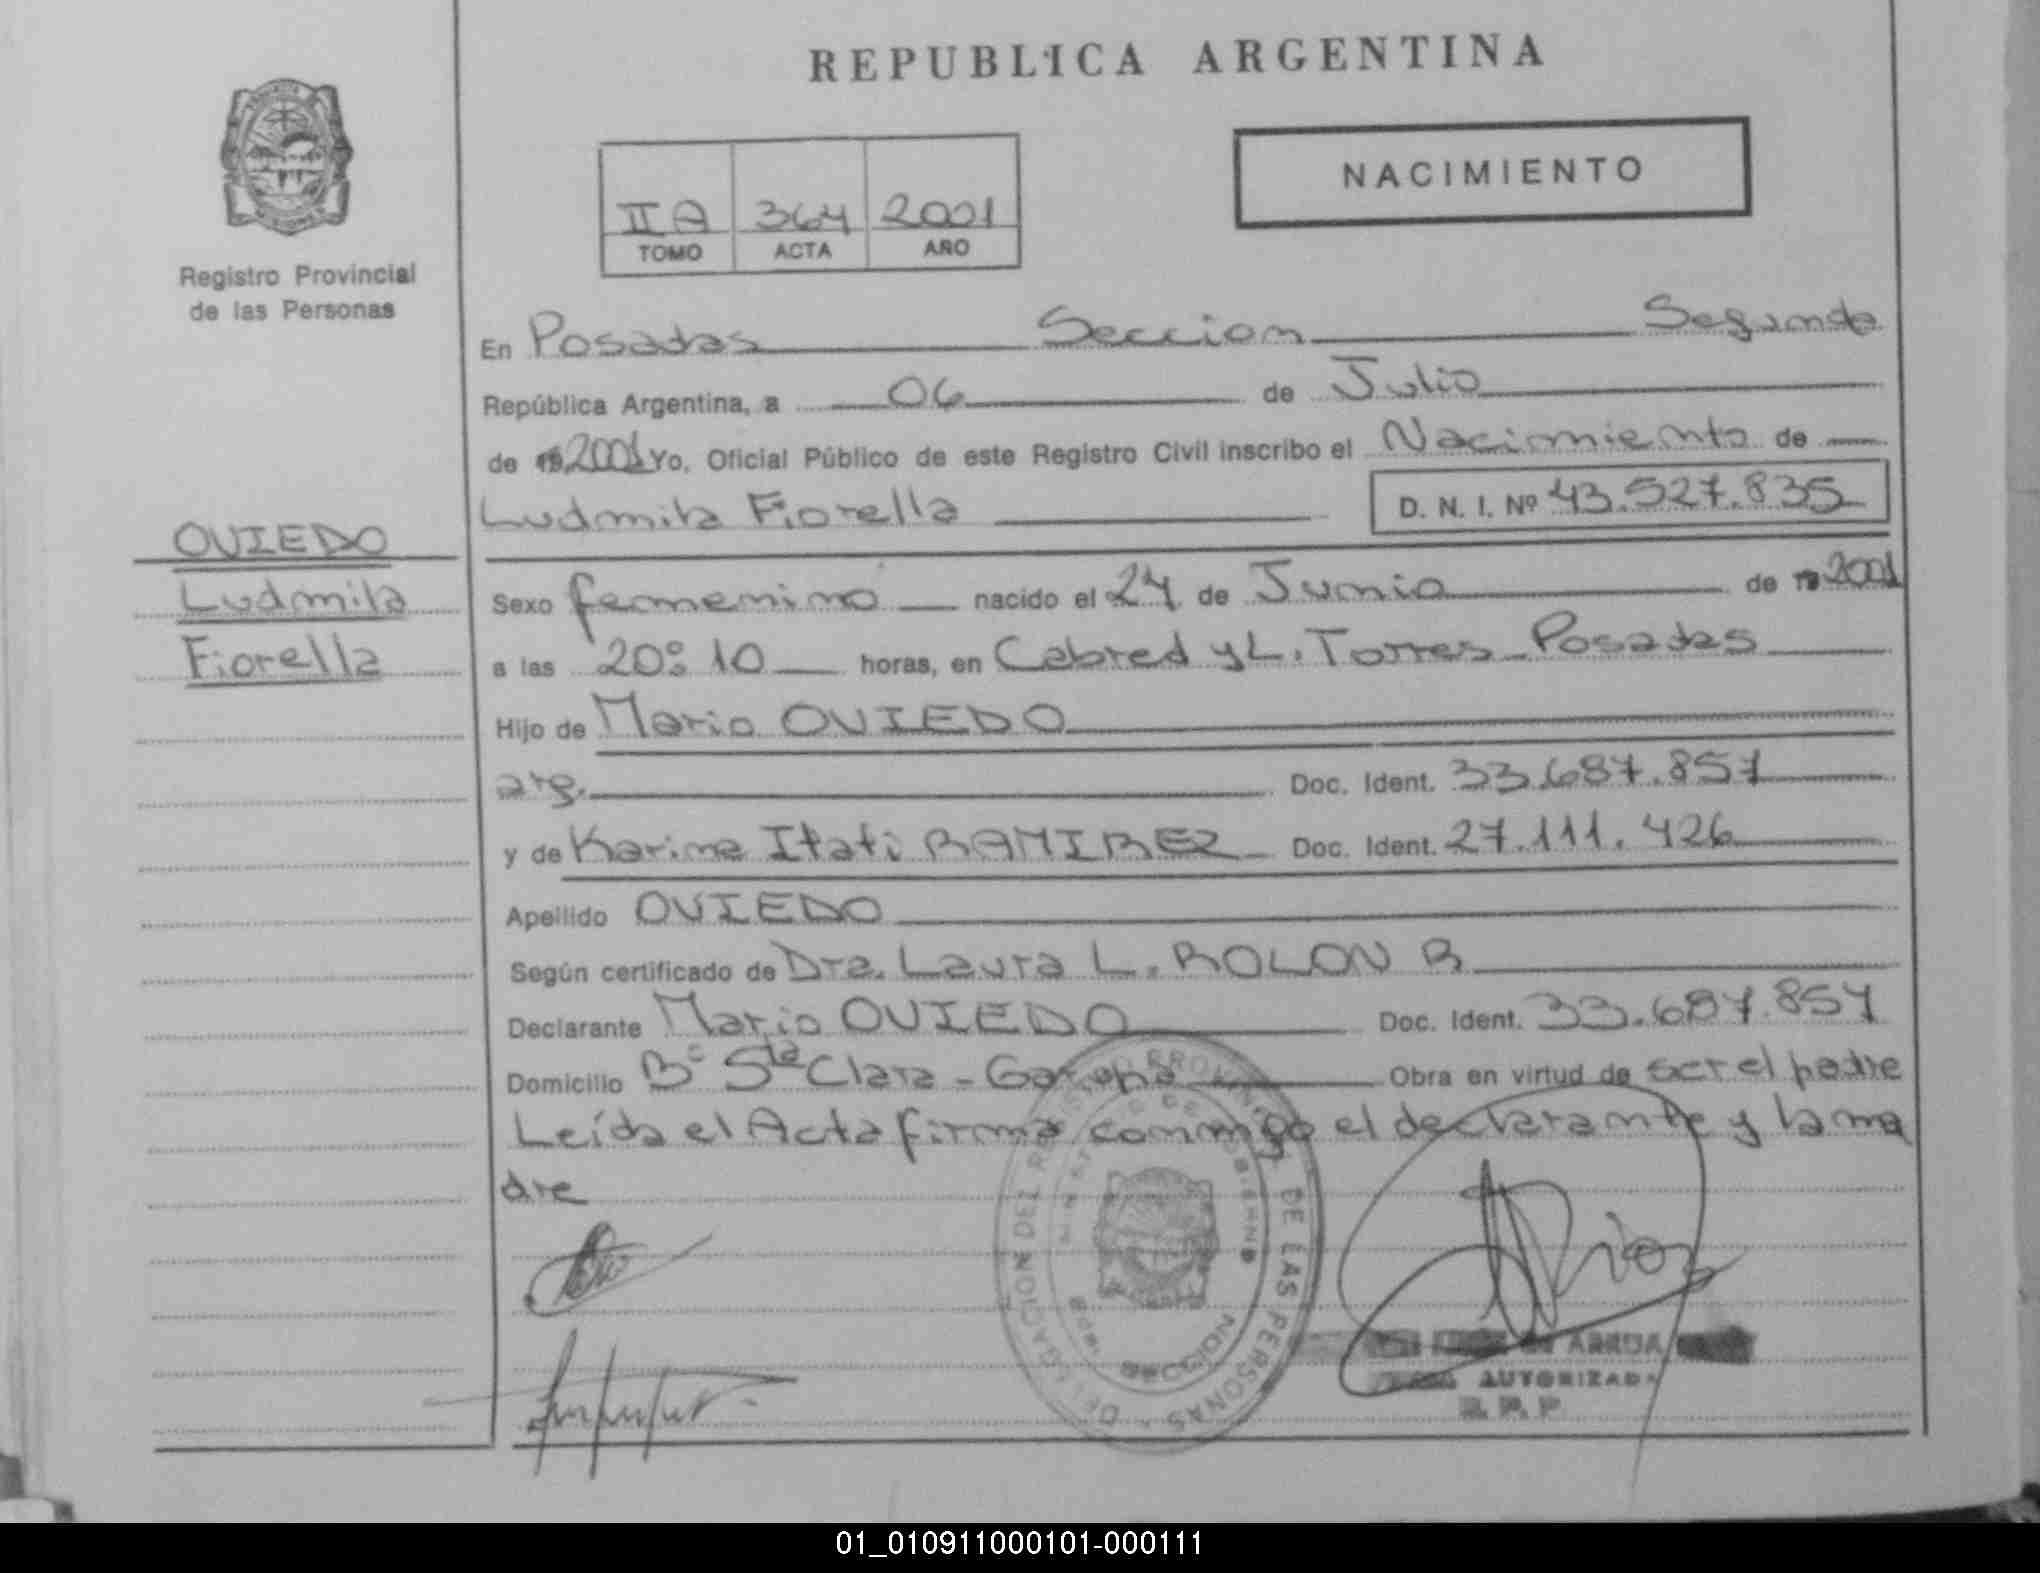 REPUBLICA ARGENTINA
NACIMIENTO
II A 364 2001
TOMO ACTA AÑO
Registro Provincial
de las Personas
En Posadas Seccion Segunda
República Argentina, a 06 de Julio
de 19 2001 Yo, Oficial Público de este Registro Civil inscribo el Nacimiento de
Ludmila Fiorella D. N. I. Nº 43.527.835
OVIEDO
Ludmila
Fiorella
Sexo femenino nacido el 24 de Junio de 19 2001
a las 20:10 horas, en Cabred y L. Torres Posadas
Hijo de Mario OVIEDO
arg. Doc. Ident. 33.687.857
y de Karina Itati RAMIREZ Doc. Ident. 27.111.426
Apellido OVIEDO
Según certificado de Dra. Laura L. ROLON B
Declarante Mario OVIEDO Doc. Ident. 33.687.857
Domicilio Bº Sta Clara - Garupa Obra en virtud de ser el padre
Leída el Acta firma conmigo el declarante y la ma
dre
DELEGACION DEL REGISTRO PROVINCIAL DE LAS PERSONAS
MINISTERIO DE GOBIERNO
SECCION
ARRUA
AUTORIZADA
R. P. P.
01_010911000101-000111